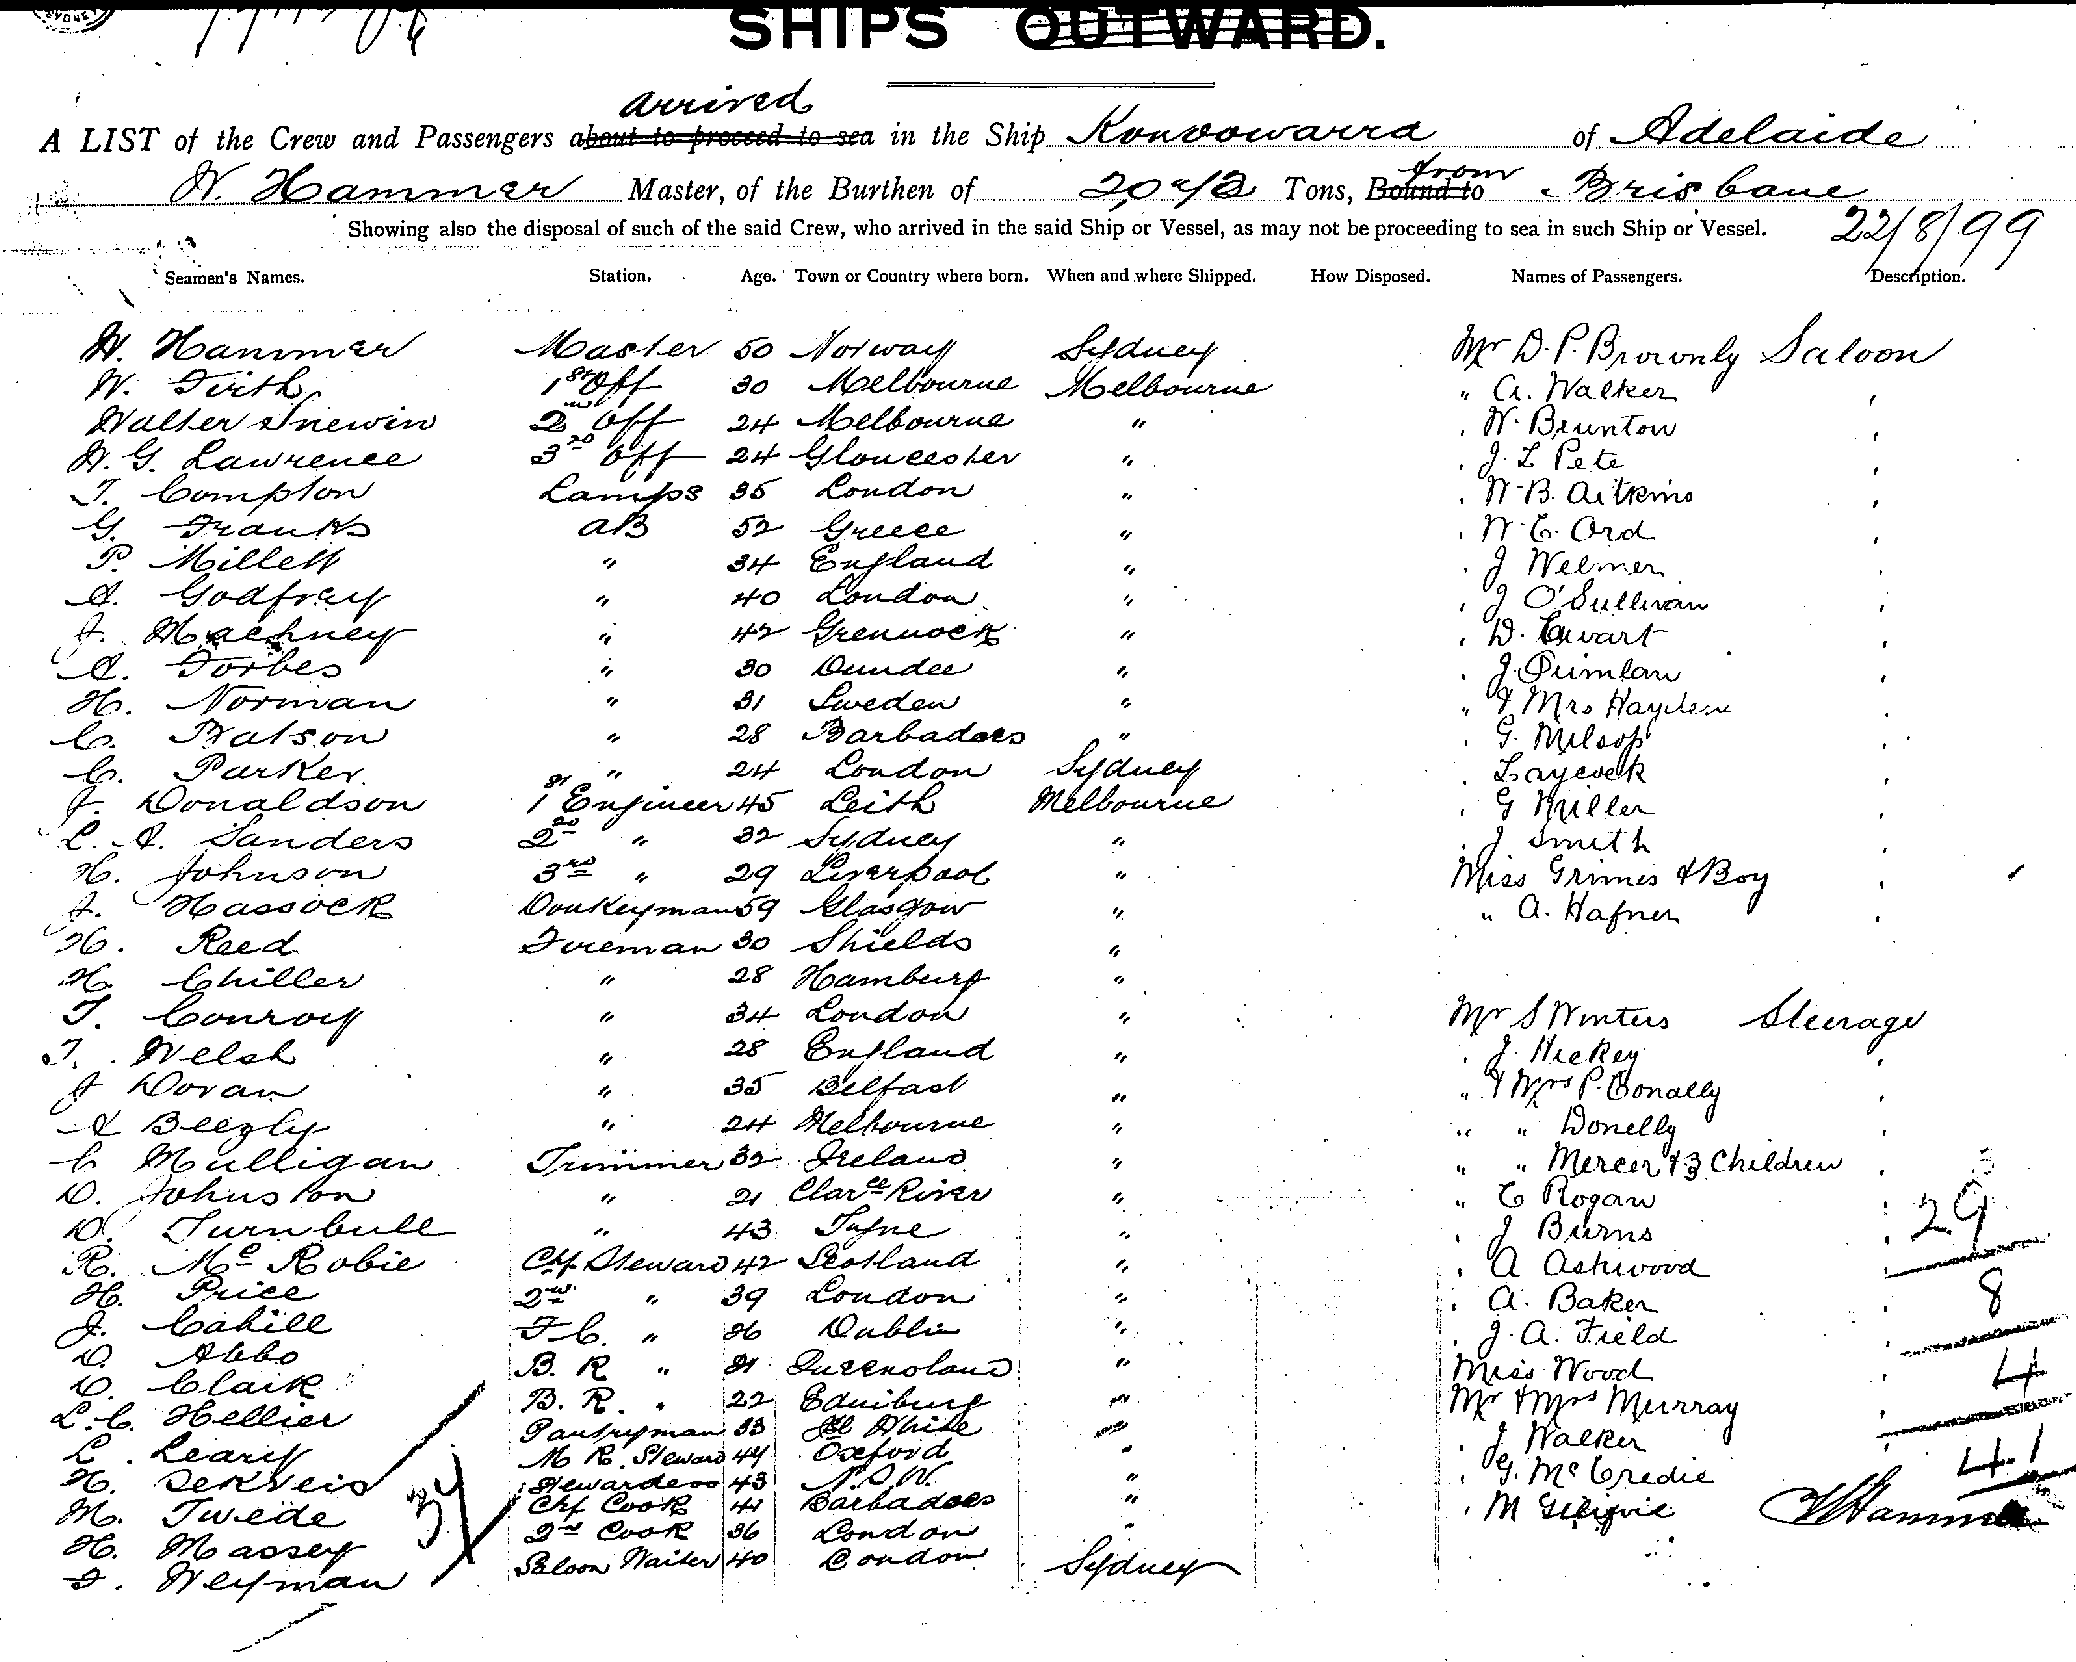 SHIPS OUTWARD.
arrived
A LIST of the Crew and Passengers about to proceed to sea in the Ship Konoowarra of Adelaide
from
W. Hammer Master, of the Burthen of Tons, Bound to Brisbane
Showing also the disposal of such of the said Crew, who arrived in the said Ship or Vessel, as may not be proceeding to sea in such Ship or Vessel. 22/8/99
Seamen's Names. Station. Age. Town or Country where born. When and where Shipped. How Disposed. Names of Passengers. Description.
W. Hammer Master 50 Norway Sydney Mr D. P. Brownly Saloon
W. Firth 1st Off 30 Melbourne Melbourne " A. Walker
Walter Snewin 2nd Off 24 Melbourne " W. Brunton
W. G. Lawrence 3rd Off 24 Gloucester " J. L Pete
T. Compton Lamps 35 London " W. B. Aitkins
G. Franks AB 52 Greece " W. E. Ord
P. Millett " 34 England " J Welmer
A. Godfrey " 40 London " J O'Sullivan
J. " 42 Greenock " D. Ewart
A. Forbes " 30 Dundee " J.
H. Norman " 31 Sweden " & Mrs Haydem
C. Watson " 28 Barbadoes " G. Milsop
C. Parker " 24 London Sydney Laycock
J. Donaldson 1st Engineer 45 Leith Melbourne G Miller
L. A. Sanders 2nd " 32 Sydney " J Smith
H. Johnson 3rd " 29 Liverpool " Miss Grimes & Boy
J. Hassock Donkeyman 59 Glasgow " " A. Hafner
H. Reed Fireman 30 Shields "
H. Chiller " 28 Hamburg "
T. Conroy " 34 London " Mr S Winters Steerage
T. Welsh " 28 England " J. Hickey
J Doran " 35 Belfast " " & Mrs P. Conally
A Beezly " 24 Melbourne " " " Donelly
C Mulligan Trimmer 32 Ireland " " " Mercer & 3 Children
D. Johnston " 21 Clarce River " " C Rogan 29
D. Turnbull " 43 Tyne " J Burns
R. Mc Robie Chf Steward 42 Scotland " A Ashwood
H. Price 2nd " 39 London " A. Baker 8
J. Cahill F. C. " 36 Dublin " J. A. Field
D. Abbo B. R " 21 Queensland " Miss Wood 4
D. Clark B. R. " 22 Edinburg " Mr & Mrs Murray
L. C. Hellier Pantryman 33 White " J Walker
L. Leary M. R. Steward 44 Oxford " G. Mc Credie 41
H. Stewardess 43 N.S.W. " M
M. Twede Chf Cook 41 Barbadoes " W Hammer
H. Massey 2nd Cook 36 London "
F. Weyman Saloon Waiter 40 London Sydney